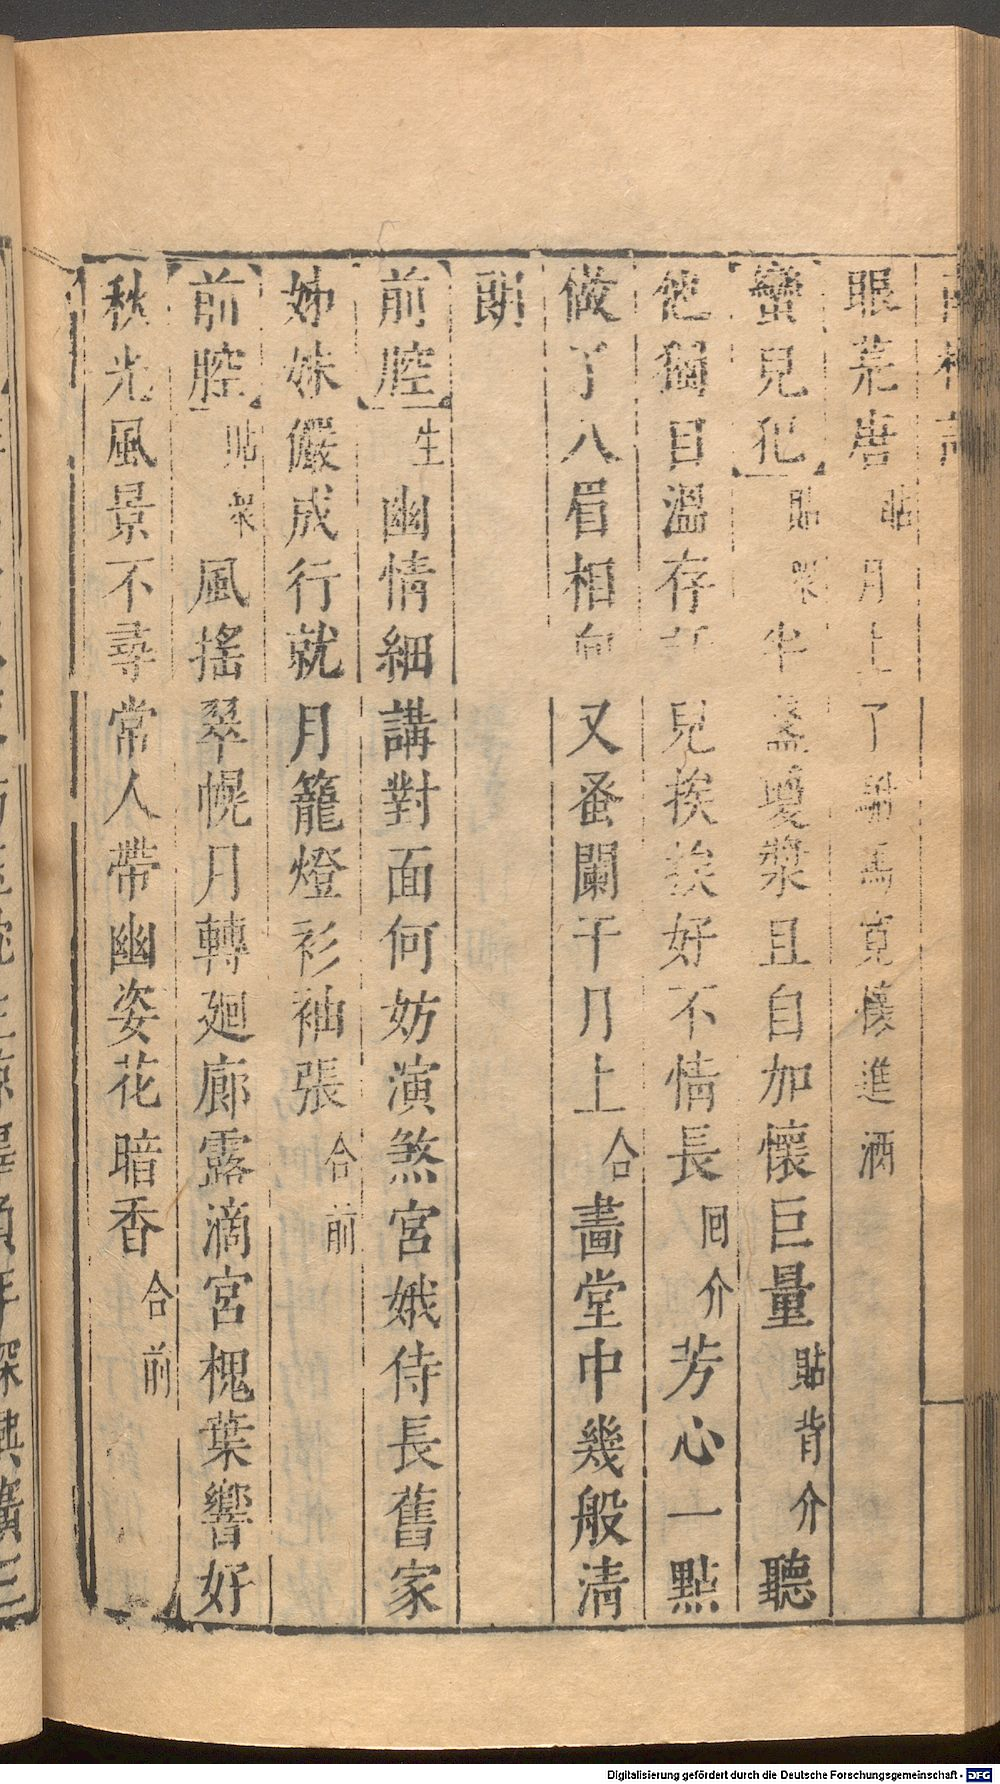 眼荒唐貼月上了
寬懷進酒
蠻兒犯貼眾半盞瓊漿且自加懷巨量貼背介聽
他獨自溫存
兒挨挨好不情長回介芳心一點
做了八眉相向又蚤闌干月上合畫堂中幾般清
朗
前腔生幽情細講對面何妨演煞宮娥侍長舊家
姊妹儼成行就月籠燈衫袖張合前
前腔貼眾風搖翠幌月轉廻廊露滴宮槐葉響好
秋光風景不尋常人帶幽姿花暗香合前
Digitalisierung gefördert durch die Deutsche Forschungsgemeinschaft - DFG